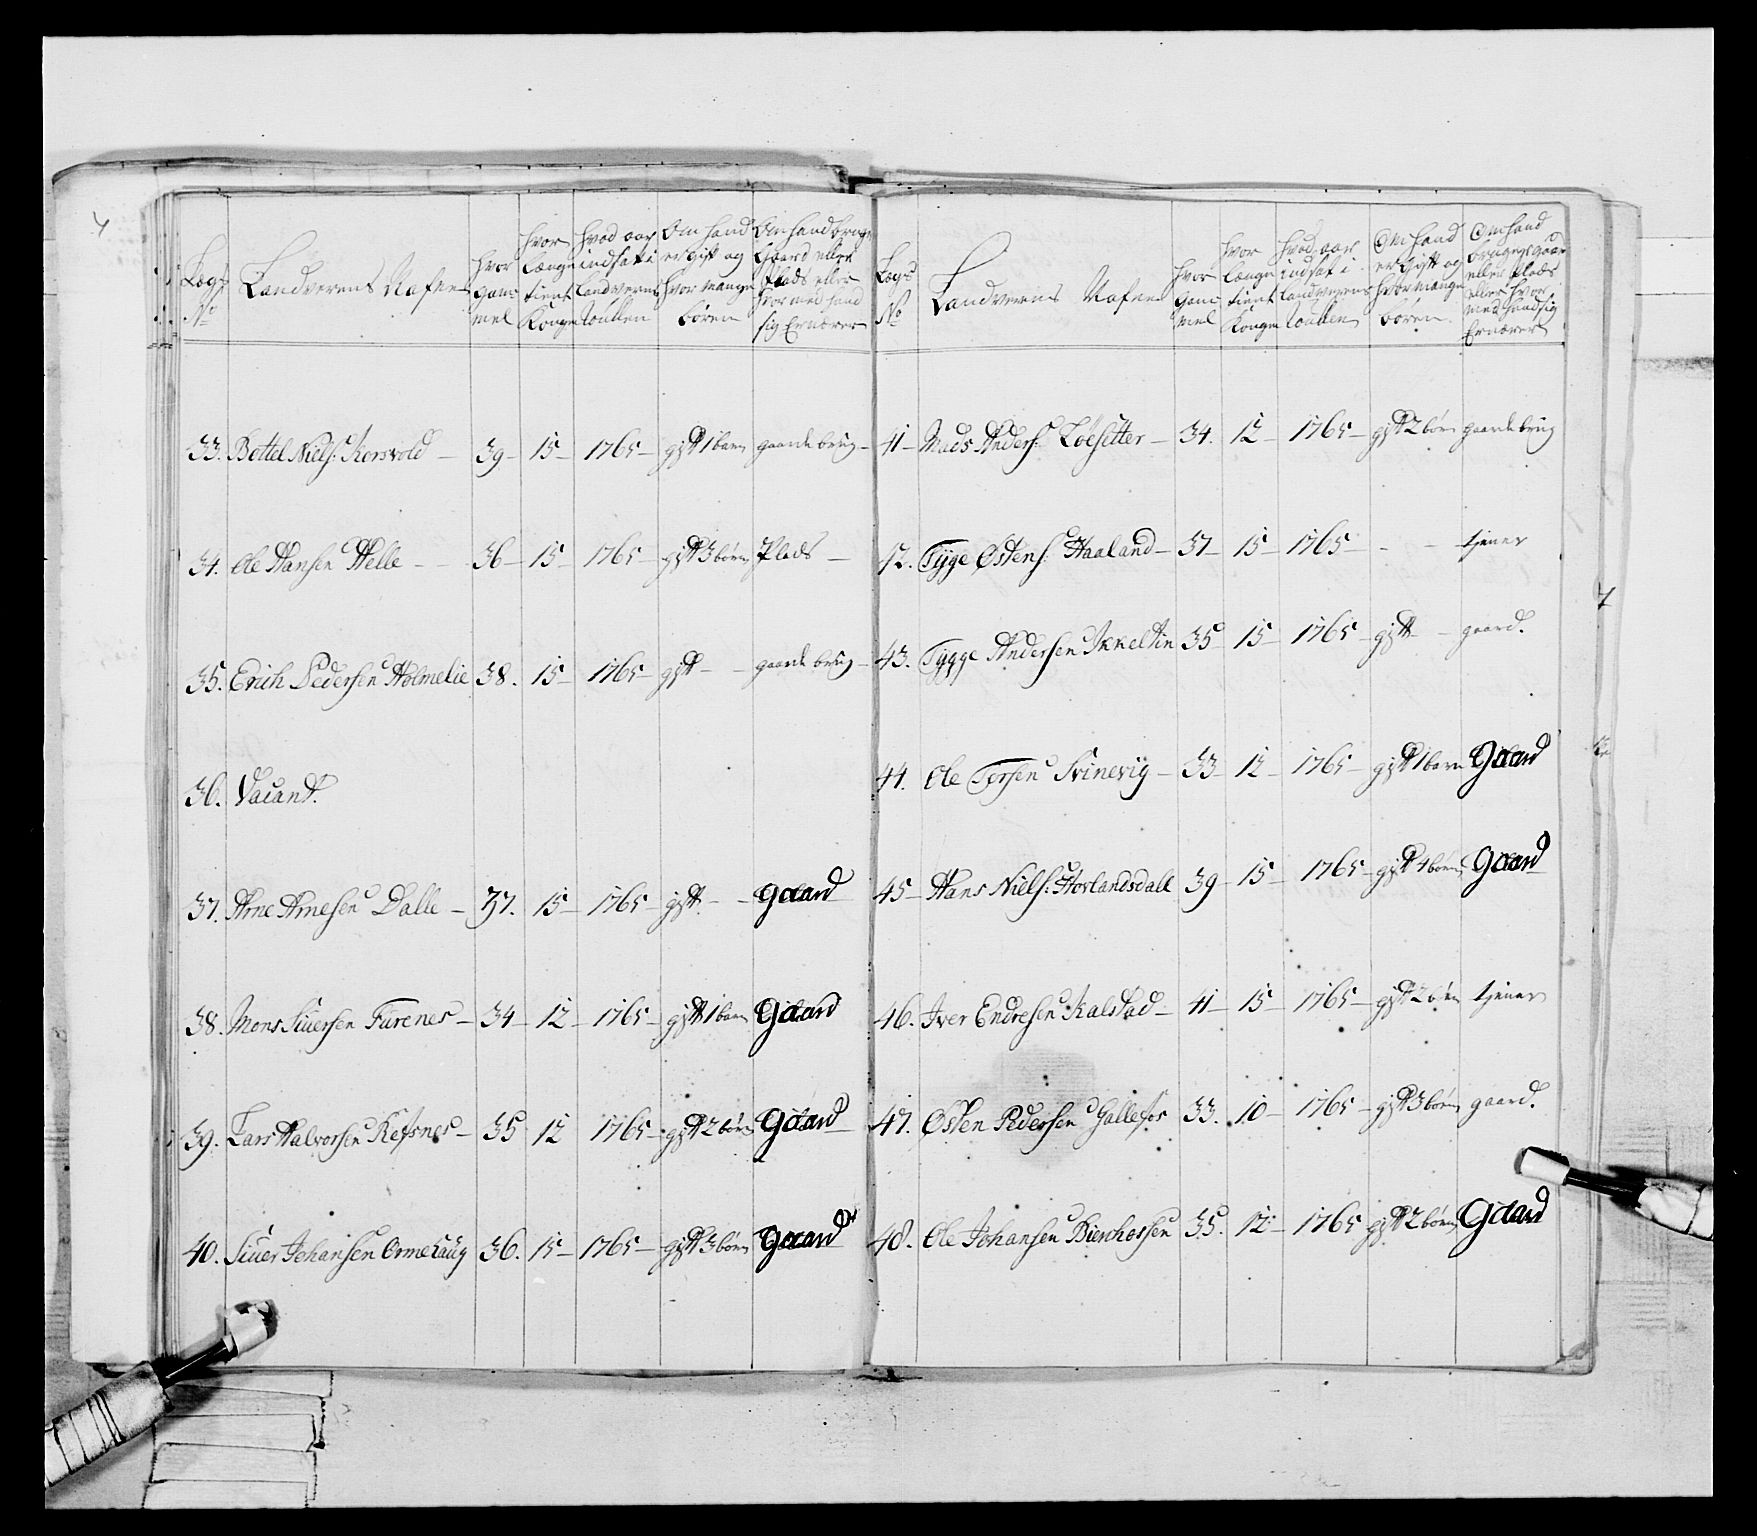 Lægs No
Landverens Nafne
hvor gammel
hvor længe tient Kongen
hvad aar indsat i landverns Roullen
Om hand er Gift og hvor mange børen
Om hand bruger Gaard eller Plads eller hvor med hand sig Ernærer
33. Bottel Niels: Korsvold – 39 – 15 – 1765 – gift 1 barn gaarde brug –
34. Ole Hansen Helle – – 36 – 15 – 1765 – gift 3 børn Plads –
35. Erich Pedersen Holmelie 38. 15 – 1765 – gift – – gaarde brug –
36. Vacant.
37. Arne Arnesen Dalle – 37. 15 – 1765 – gift – – Gaard
38. Mons Siuersen Furenes – 34 – 12 – 1765 – gift 1 barn Gaard
39. Lars Halvorsen Refsnes – 35 12 1765 – gift 2 børn Gaard
40. Siuer Johansen Ormelaug 36. 15 – 1765 – gift 3 børn Gaard
Lægs No
Landverens Nafne
hvor gammel
hvor længe tient Kongen
hvad aar indsat i landverens Roullen
Om hand er Gift og hvor mange børen
Om hand bruger gaar eller Plads eller hvor med hand sig Ernærer
41 – Mads Anders: Løesetter – 34. 12 – 1765 – gift 2 børn gaarde brug
42. Tyge Østens: Haaland – 37 – 15 – 1765 – – – tjener
43. Tygge Andersen 35 – 15 – 1765 – gift – – gaard.
44. Ole Torsen Svinevig – 33 – 12 – 1765 – gift 1 barn Gaard
45 – Hans Niels: Hovlandsdall 39 – 15 – 1765 – gift 4 børn Gaard
46. Iver Endresen Kalstad – 41 – 15 – 1765 – gift 2 børn tjener
47. Østen Pedersen Gallefos 33. 10 – 1765 – gift 3 børn gaard.
48. Ole Johansen 35. 12 – 1765 gift 2 børn Gaard